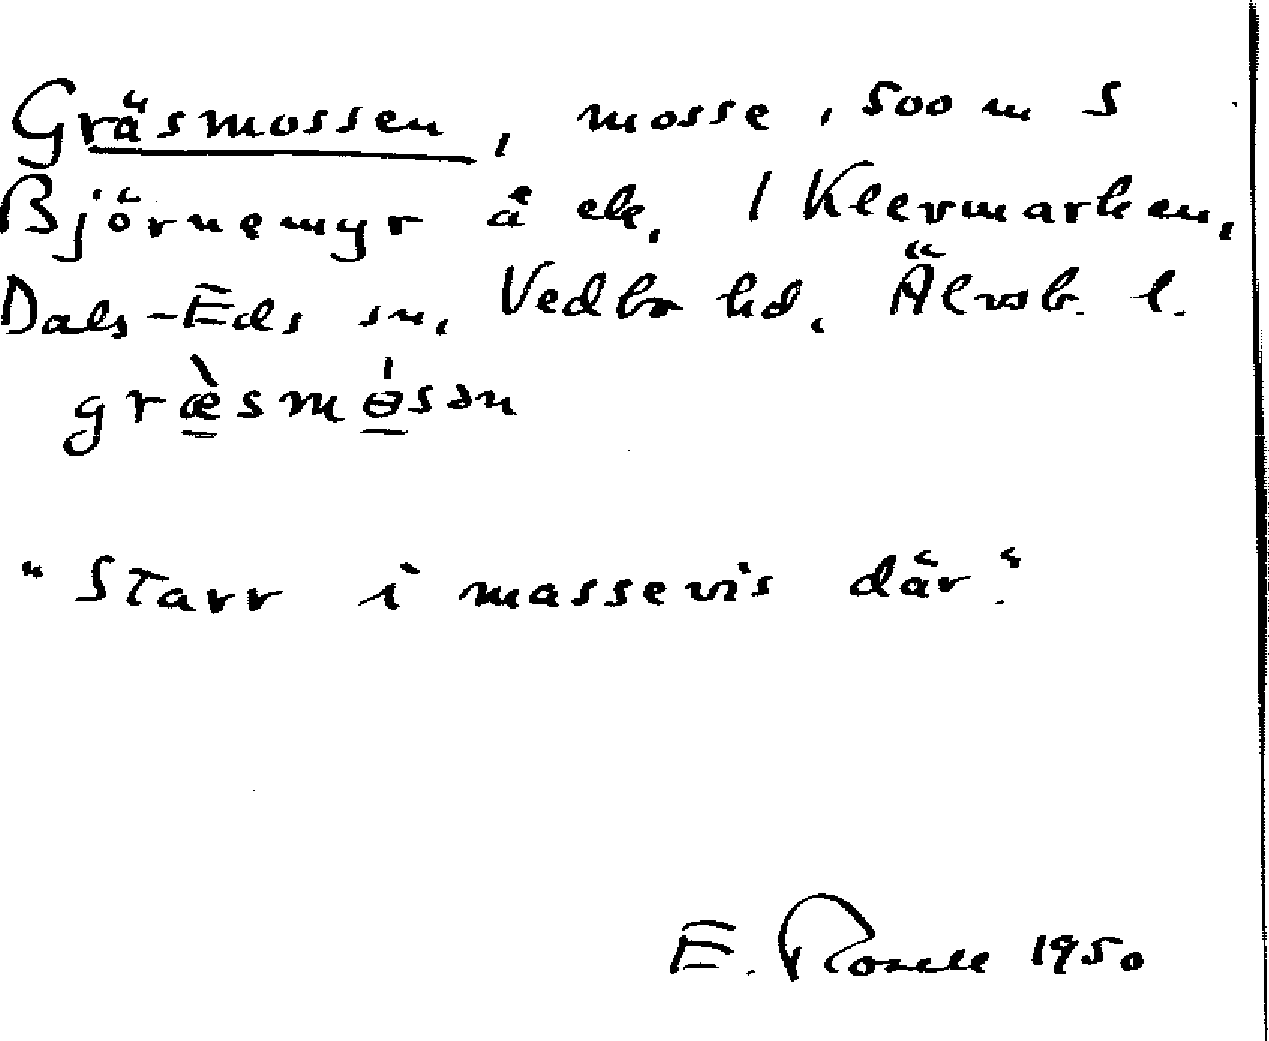 Gräsmossen, mosse, 500 m S
Björnemyr å ek. 1 Klevmarken,
Dals-Eds sn, Vedbo hd, Älvsb. l.
græ̀smɵ́sən
"Starr i massevis där."
E. Rosell 1950